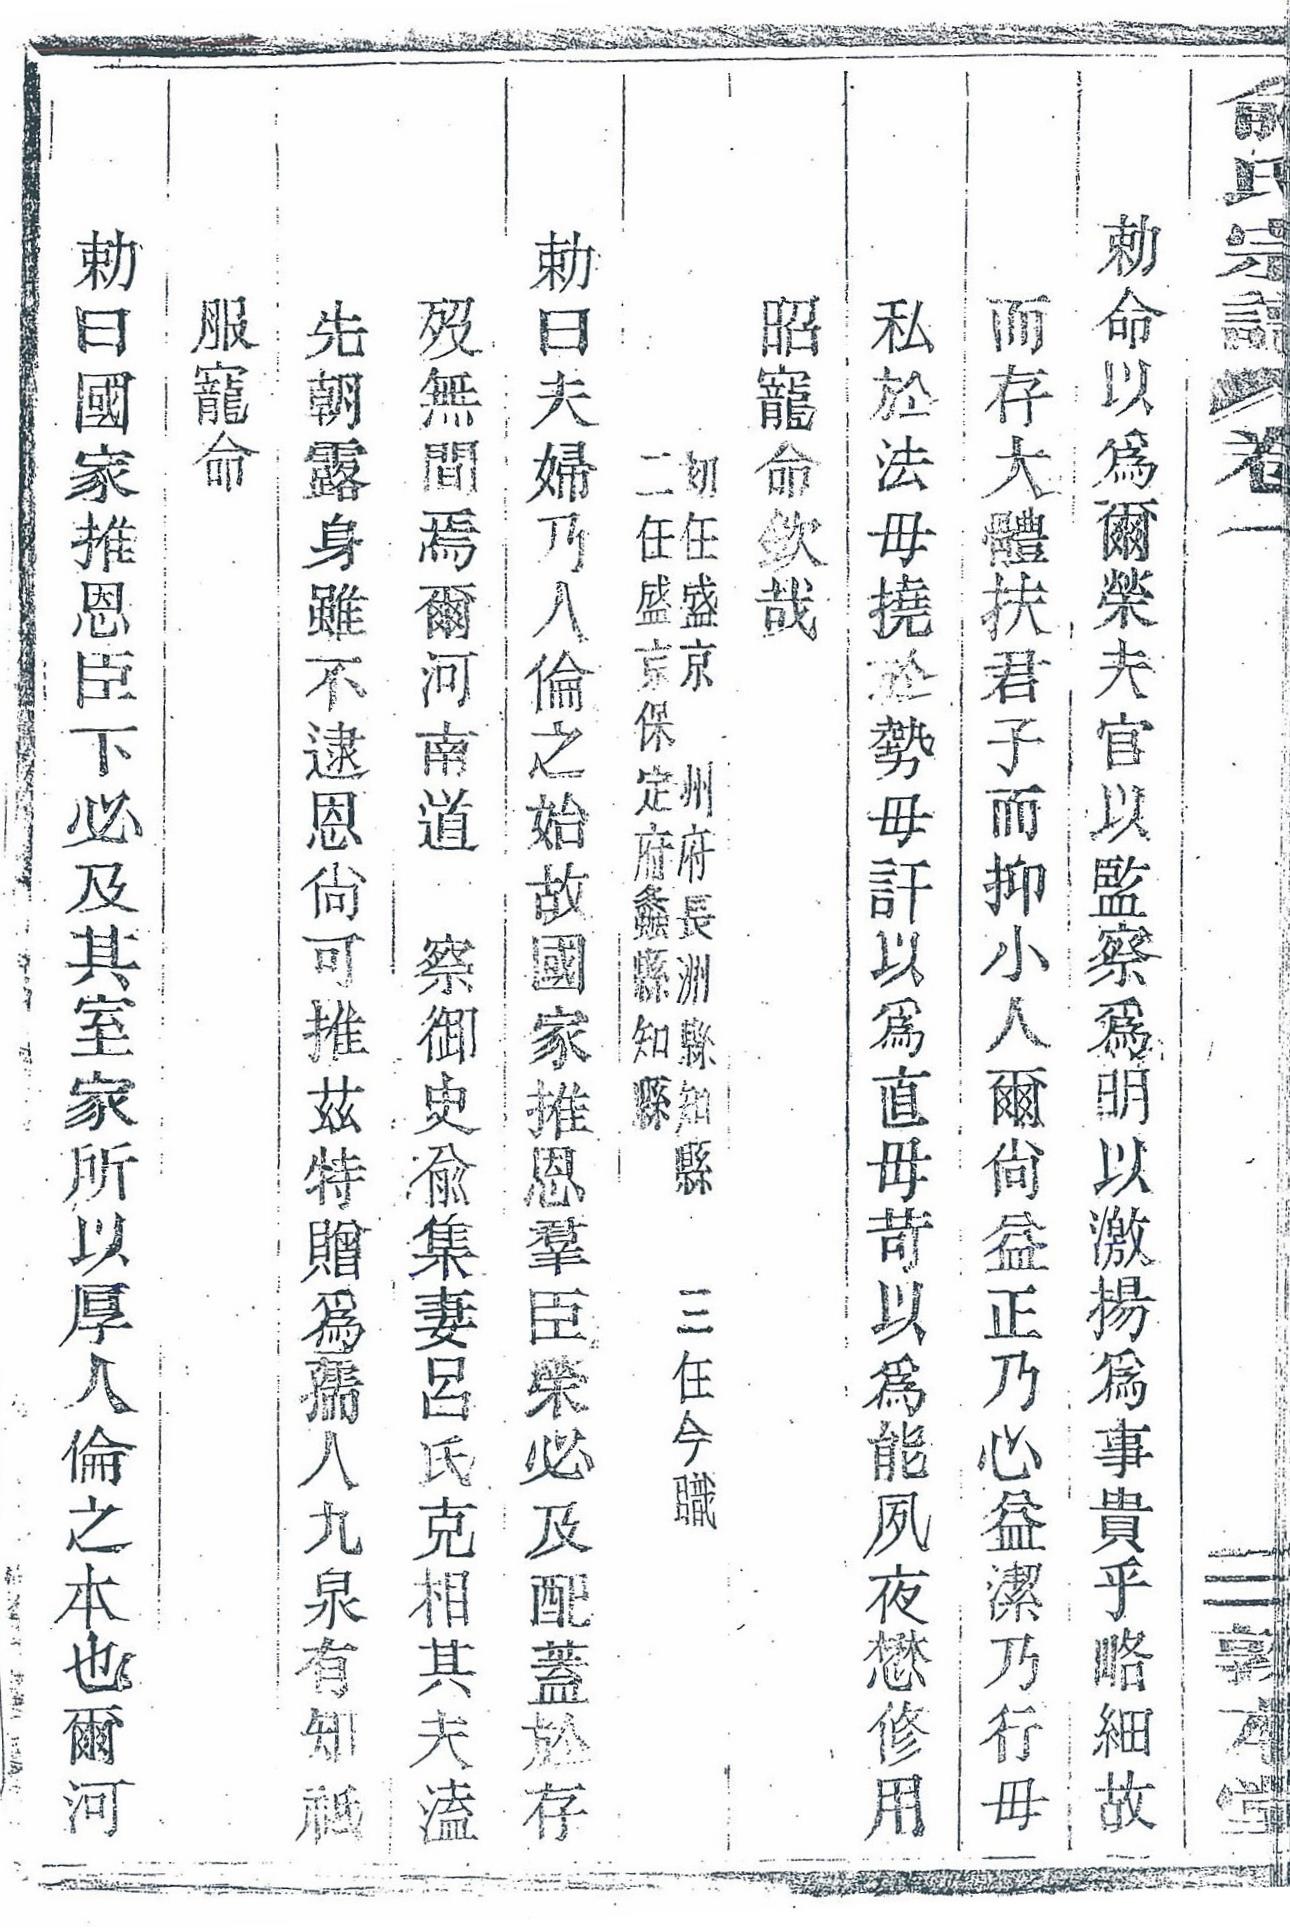 俞氏宗譜 卷一 三 敦本堂
勅命以爲爾榮夫官以監察爲明以激揚爲事貴乎略細故
而存大體扶君子而抑小人爾尙益正乃心益潔乃行毋
私於法毋撓於勢毋訐以爲直毋苛以爲能夙夜懋修用
昭寵命欽哉
初任盛京 州府長洲縣知縣 三任今職
二任盛京保定府蠡縣知縣
勅曰夫婦乃人倫之始故國家推恩羣臣榮必及配蓋於存
歿無間焉爾河南道 察御史俞集妻呂氏克相其夫溘
先朝露身雖不逮恩尙可推茲特贈爲孺人九泉有知祗
服寵命
勅曰國家推恩臣下必及其室家所以厚人倫之本也爾河